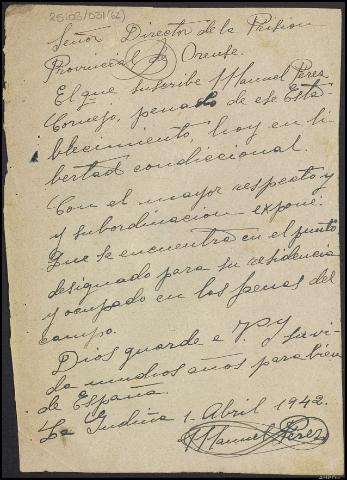 25/03/031(62)
Señor Director de la Prision
Provincial de Orense.
El que suscribe Manuel Perez
Cornejo, penado de ese Esta-
blecimiento, hoy en li-
bertad condiccional.
Con el mayor respecto y
y subordinacion expone:
Que se encuentra en el punto
designado para su residencia
y ocupado en las faenas del
campo.
Dios guarde a V. y su vi-
da muchos años para bien
de España.
La Gudiña 1 Abril 1942.
Manuel Pérez